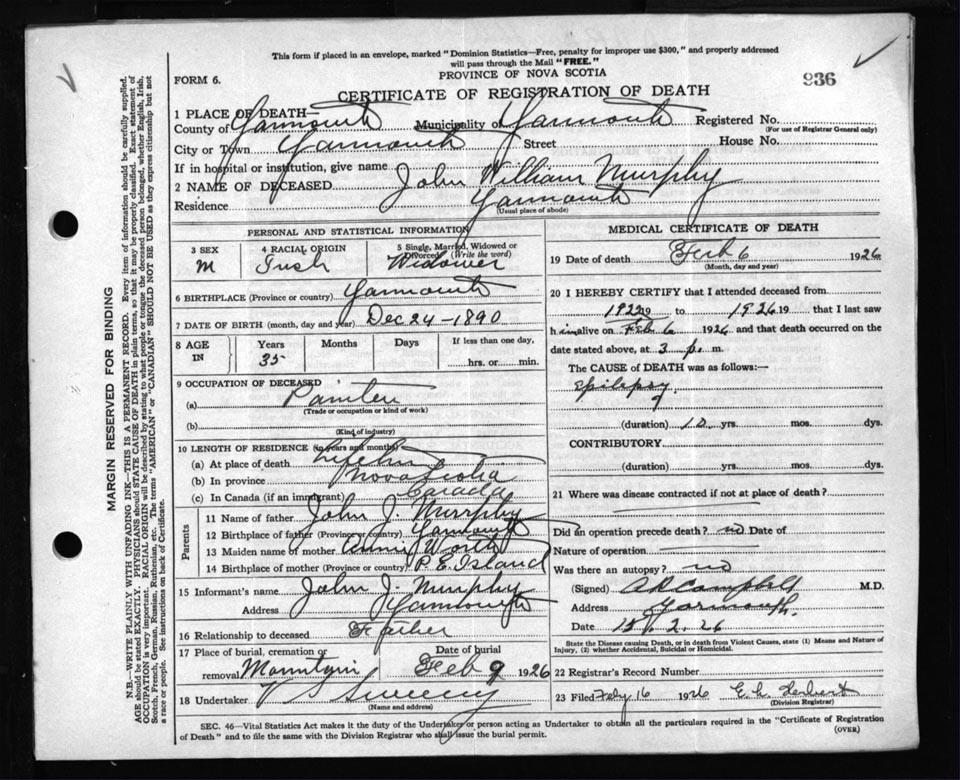 This form if placed in an envelope, marked "Dominion Statistics—Free, penalty for improper use $300," and properly addressed
will pass through the Mail "FREE."
PROVINCE OF NOVA SCOTIA
FORM 6.
936
CERTIFICATE OF REGISTRATION OF DEATH
1 PLACE OF DEATH—
County of Yarmouth Municipality of Yarmouth Registered No.
(For use of Registrar General only)
City or Town Yarmouth Street House No.
If in hospital or institution, give name
2 NAME OF DECEASED John William Murphy
Residence Yarmouth
(Usual place of abode)
PERSONAL AND STATISTICAL INFORMATION
3 SEX 4 RACIAL ORIGIN 5 Single, Married, Widowed or
Divorced (Write the word)
M Irish Widower
6 BIRTHPLACE (Province or country) Yarmouth
7 DATE OF BIRTH (month, day and year) Dec 24 - 1890
8 AGE IN Years Months Days If less than one day,
35 hrs. or min.
9 OCCUPATION OF DECEASED
(a) Painter
(Trade or occupation or kind of work)
(b)
(Kind of industry)
10 LENGTH OF RESIDENCE (in years and months)
(a) At place of death
(b) In province Nova Scotia
(c) In Canada (if an immigrant) Canada
Parents
11 Name of father John J. Murphy
12 Birthplace of father (Province or country) Yarmouth
13 Maiden name of mother Annie Worth
14 Birthplace of mother (Province or country) P. E. Island
15 Informant's name John J. Murphy
Address Yarmouth
16 Relationship to deceased Father
17 Place of burial, cremation or Date of burial
removal Feb 9 1926
18 Undertaker V S Sweeny
(Name and address)
MEDICAL CERTIFICATE OF DEATH
19 Date of death Feb 6 1926
(Month, day and year)
20 I HEREBY CERTIFY that I attended deceased from
1922 19 to 1926 19 that I last saw
him alive on Feb 6 1926 and that death occurred on
date stated above, at 3 p. m.
The CAUSE of DEATH was as follows:—
Epilepsy
(duration) 10 yrs. mos. dys.
CONTRIBUTORY
(duration) yrs. mos. dys.
21 Where was disease contracted if not at place of death?
Did an operation precede death? no Date of
Nature of operation
Was there an autopsy? no
(Signed) A R Campbell M.D.
Address Yarmouth.
Date 15. 2. 26
State the Disease causing Death, or in death from Violent Causes, state (1) Means and Nature of
Injury, (2) whether Accidental, Suicidal or Homicidal.
22 Registrar's Record Number
23 Filed Feby 16 1926
(Division Registrar)
SEC. 46—Vital Statistics Act makes it the duty of the Undertaker or person acting as Undertaker to obtain all the particulars required in the "Certificate of Registration
of Death" and to file the same with the Division Registrar who shall issue the burial permit.
(OVER)
MARGIN RESERVED FOR BINDING
N.B.—WRITE PLAINLY WITH UNFADING INK—THIS IS A PERMANENT RECORD. Every item of information should be carefully supplied.
AGE should be stated EXACTLY. PHYSICIANS should STATE CAUSE OF DEATH in plain terms, so that it may be properly classified. Exact statement of
OCCUPATION is very important. RACIAL ORIGIN will be described by stating to what people or tongue the deceased person belonged, whether English, Irish,
Scotch, French, German, Russian, Ruthenian, etc. The terms "AMERICAN" or "CANADIAN" SHOULD NOT BE USED as they express citizenship but not
a race or people. See instructions on back of Certificate.